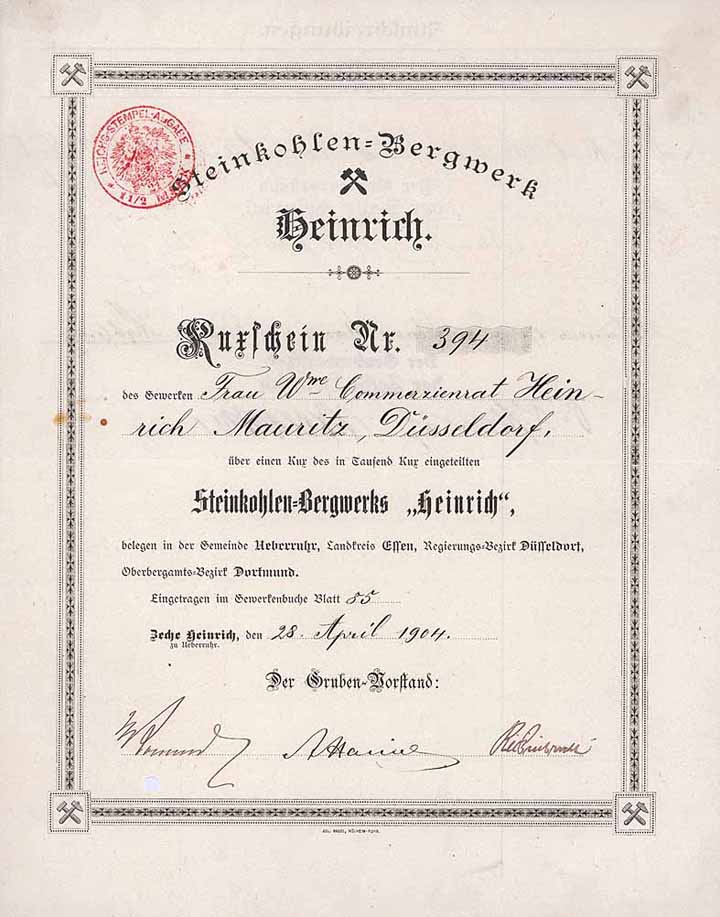 REICHS-STEMPEL-ABGABE
1 1/2 M
Steinkohlen=Bergwerk
Heinrich.
Kuxschein Nr. 394
des Gewerken Frau Wwe Commerzienrat Hein-
rich Mauritz, Düsseldorf,
über einen Kux des in Tausend Kux eingeteilten
Steinkohlen=Bergwerks „Heinrich“,
belegen in der Gemeinde Ueberruhr, Landkreis Essen, Regierungs=Bezirk Düsseldorf,
Oberbergamts=Bezirk Dortmund.
Eingetragen im Gewerkenbuche Blatt 85
Zeche Heinrich, den 28. April 1904.
zu Ueberruhr.
Der Gruben=Vorstand: